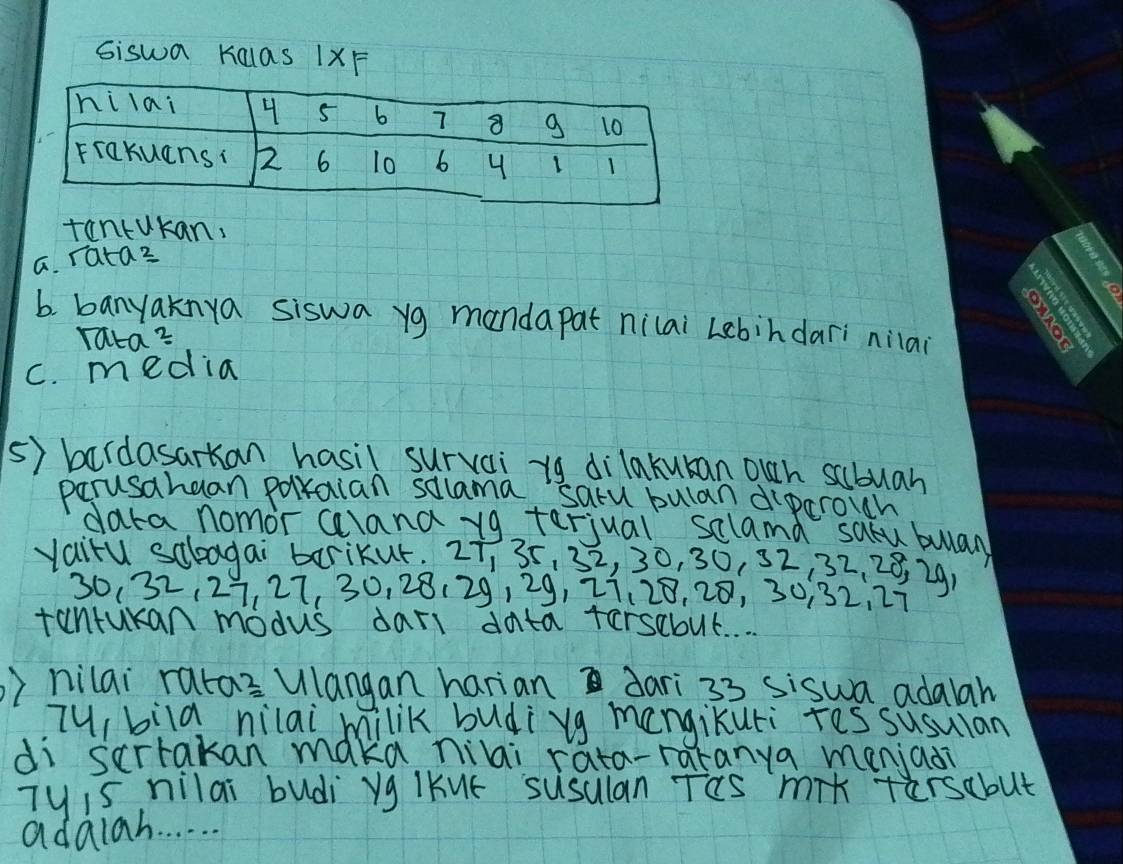 siswa kelas IXF
nilai 4 5 6 7 8 9 10
Frekuensi 2 6 10 6 4 1 1
tentukan:
a. rata2
b. banyaknya siswa yg mendapat nilai Lebih dari nilai
rata2
c. media
5) berdasarkan hasil survei yg dilakukan oleh sebuah
perusahaan pakaian selama satu bulan diperoleh
data nomor celana yg terjual selama satu bulan
yaitu sebagai berikut. 27, 35, 32, 30, 30, 32, 32, 28, 29,
30, 32, 27, 27, 30, 28, 29, 29, 27, 28, 28, 30, 32, 27
tentukan modus dari data tersebut....
) nilai rata2 ulangan harian dari 33 siswa adalah
74, bila nilai milik budi yg mengikuti tes susulan
di sertakan maka nilai rata-ratanya menjadi
74,5 nilai budi yg ikut susulan Tes mtk tersebut
adalah......
JOYKO